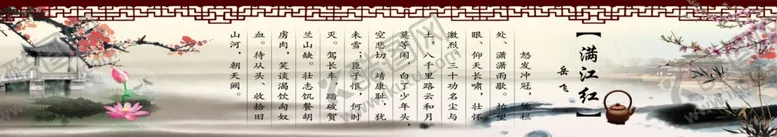 【满江红】
岳飞
怒发冲冠,凭栏
处、潇潇雨歇。抬望
眼、仰天长啸,壮怀
激烈。三十功名尘与
土,八千里路云和月。
莫等闲、白了少年头,
空悲切。靖康耻,犹
未雪;臣子恨,何时
灭。驾长车,踏破贺
兰山缺。壮志饥餐胡
虏肉,笑谈渴饮匈奴
血。待从头、收拾旧
山河,朝天阙。